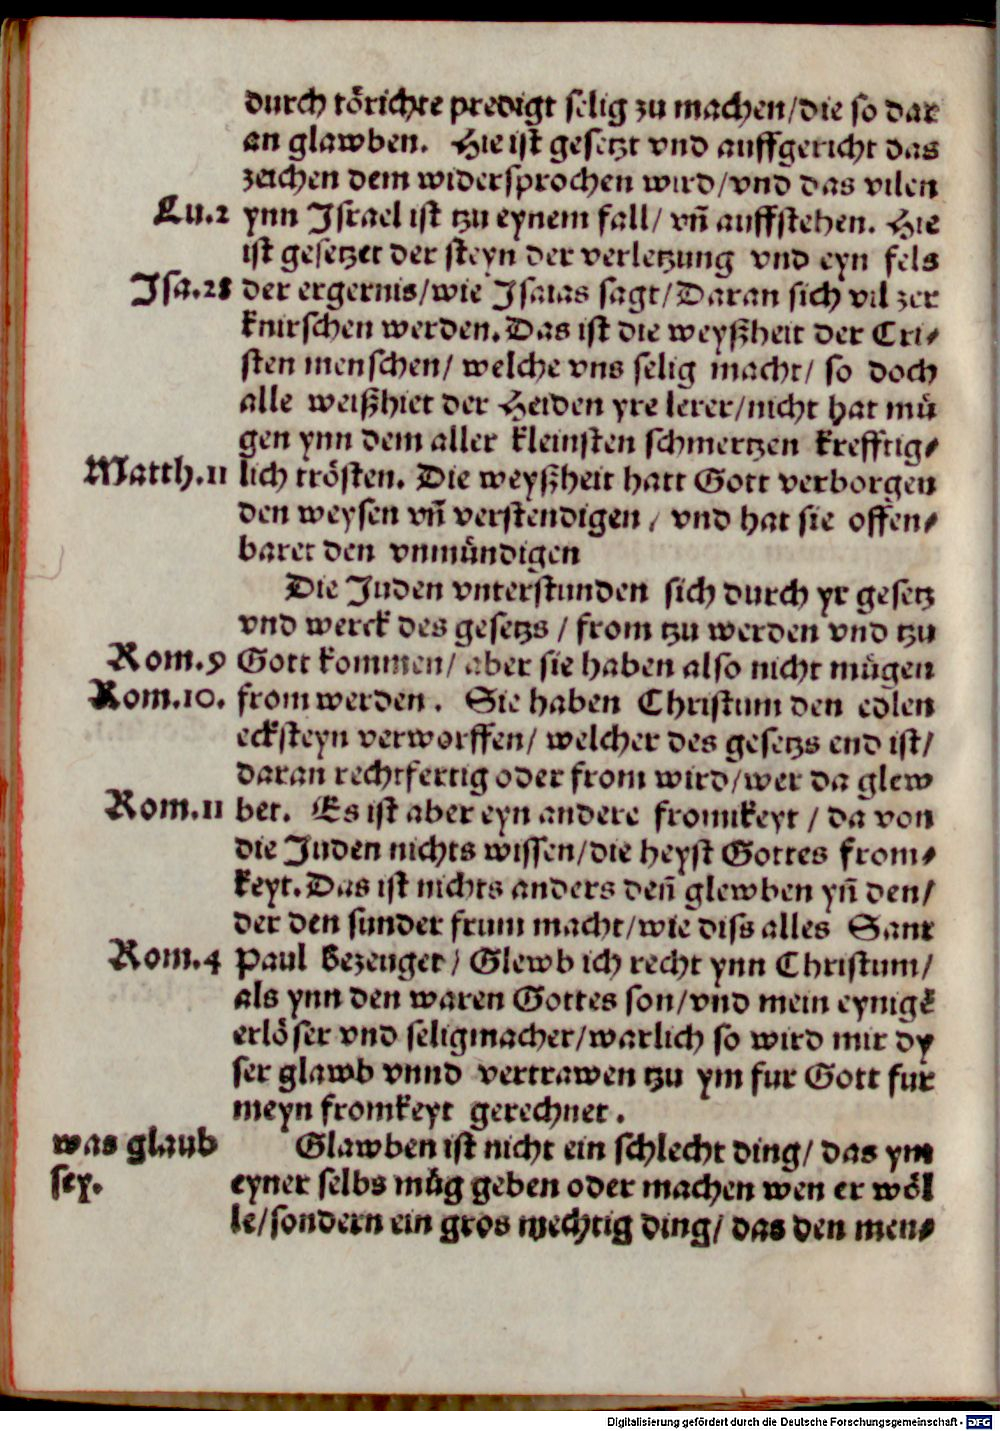 durch törichte predigt selig zu machen/die so dar
an glawben. Hie ist gesetzt vnd auffgericht das
zeichen dem widersprochen wird/vnd das vilen
Lu.2 ynn Israel ist tzu eynem fall/ vñ auffstehen. Hie
ist gesetzet der steyn der verletzung vnd eyn fels
Isa.28 der ergernis/wie Isaias sagt/Daran sich vil zer
knirschen werden. Das ist die weyßheit der Cri⸗
sten menschen/ welche vns selig macht/ so doch
alle weißhiet der Heiden yre lerer/nicht hat mů
gen ynn dem aller kleinsten schmertzen krefftig⸗
Matth.11 lich trösten. Die weyßheit hatt Gott verborgen
den weysen vñ verstendigen / vnd hat sie offen⸗
baret den vnmůndigen
Die Juden vnterstunden sich durch yr gesetz
vnd werck des gesetzs / from tzu werden vnd tzu
Rom.9 Gott kommen/ aber sie haben also nicht můgen
Rom.10. from werden. Sie haben Christum den edlen
ecksteyn verworffen/ welcher des gesetzs end ist/
daran rechtfertig oder from wird/wer da glew
Rom.11 bet. Es ist aber eyn andere fromkeyt / da von
die Juden nichts wissen/die heyst Gottes from⸗
keyt. Das ist nichts anders deñ glewben yñ den/
der den sunder frum macht/wie diss alles Sant
Rom.4 Paul bezeuget/ Glewb ich recht ynn Christum/
als ynn den waren Gottes son/vnd mein eynigē
erlöser vnd seligmacher/warlich so wird mir dy
ser glawb vnnd vertrawen tzu ym fur Gott fur
meyn fromkeyt gerechnet.
was glaub Glawben ist nicht ein schlecht ding/ das ym
sey. eyner selbs můg geben oder machen wen er wöl
le/sondern ein gros mechtig ding/ das den men⸗
Digitalisierung gefördert durch die Deutsche Forschungsgemeinschaft - DFG